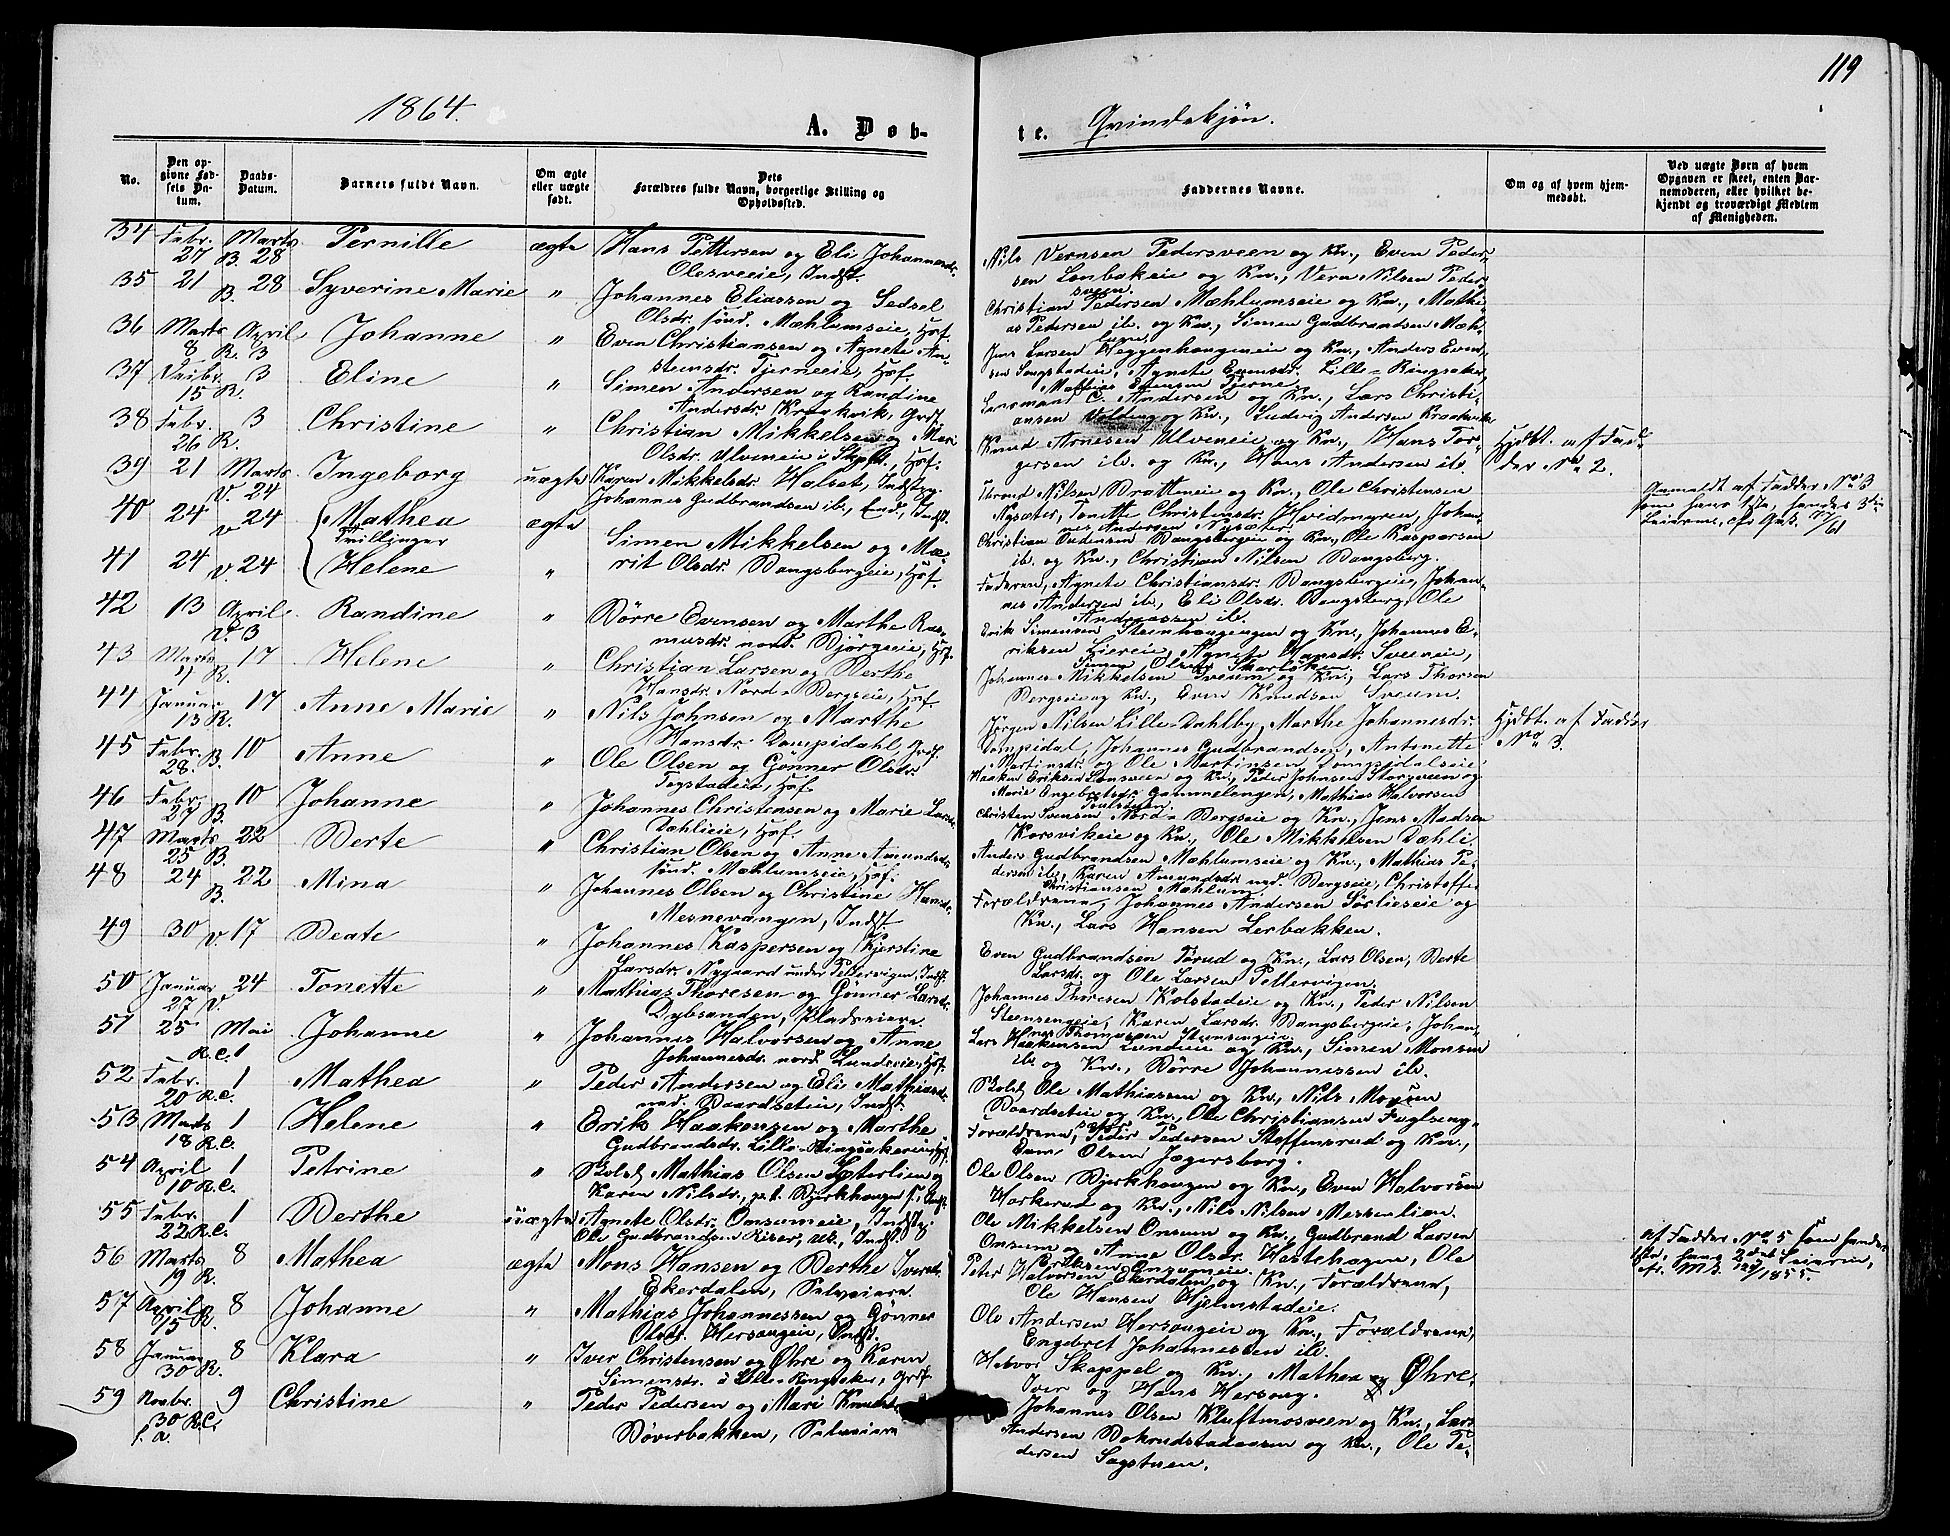 119
1864.
A. Døb-
te. Qvindekjøn.
No.
Den op-
givne Fød-
sels Da-
tum.
Daabs-
Datum.
Barnets fulde Navn.
Om ægte
eller uægte
født.
Dets
Forældres fulde Navn, borgerlige Stilling og
Opholdssted.
Faddernes Navne.
Om og af hvem hjem-
medøbt.
Ved uægte Børn af hvem
Opgaven er skeet, enten Bar-
nemoderen, eller hvilket be-
kjendt og troværdigt Medlem
af Menigheden.
34 Febr. 27 Marts B. 28 Pernille ægte Hans Pettersen og Eli Johannesdr.
Olesveeie, Indst.
Nils Vernsen Pedersveen og Kn., Even Peder-
sen Lonbakeie og Kn., Vern Nilsen Peder-
sveen.
35 21 B. 28 Syverine Marie " Johannes Eliassen og Sedsel
Olsdr. sønd. Mæhlumseie, Hsf.
Christian Pedersen Mæhlumseie og Kn., Mathi-
as Pedersen ib. og Kn., Simen Gudbrandsen Mæh-
lum.
36 Marts 8 April R. 3 Johanne " Even Christiansen og Agnete An-
stensdr. Tjerneeie, Hsf.
Jens Larsen Heggenhaugeneie og Kn., Anders Even-
sen Songstadeie, Agnete Evensdr. Lille-Ringsaker,
Mathias Estensen Tjerne.
37 15 R. 3 Eline " Simen Andersen og Randine
Andersdr. Krogkvik, Grdf.
Lensmand C. Andersen og Kn., Lars Christi-
ansen Volding og Kn., Ludvig Andersen
38 Febr. 26 R. 3 Christine " Christian Mikkelsen og Mari
Olsdr. Ulveneie Hsf.
Knud Arnesen Ulveneie og Kn., Hans Tor-
gersen ib. og Kn., Hans Andersen ib.
Hjdbt. af Fad-
der No. 2.
39 21 Marts V. 24 Ingeborg uægte Karen Mikkelsdr. Halset, Indstpg.
Johannes Gudbrandsen ib., Enk., Indst.
Trond Nilsen Bratteneie og Kn., Ole Christensen
Nysæter, Tonette Christensdr. Hvidmyren, Johan-
nes Andersen Nysæter.
Anmeldt af Fadder No. 3
som hans 1ste, hendes 3die
Leierm.
40 24 V. 24 Mathea ægte Simen Mikkelsen og Ma-
Tvillinger
rit Olsdr. Bangsbergeie, Hsf.
Christian Andersen Bangsbergeie og Kn., Ole Kaspersen
ib. og Kn., Christian Nilsen Bangsberg.
41 24 V. 24 Helene "
Faderen, Agnete Christiansdr. Bangsbergeie, Johan-
nes Andersen ib., Eli Olsdr. Bangsberg, Ole
Andreassen ib.
42 13 April V. 3 Randine " Børre Evensen og Marthe Ras-
musdr. nord. Bjørgeeie, Hsf.
Erik Simensen Steinhaugengen og Kn., Johannes E-
riksen Liereie, Agnete Hansdr. Sveeneie,
Simen Olsen
43 Marts R. 17 Helene " Christian Larsen og Berthe
Hansdr. Nord-Bergseie, Hsf.
Johannes Mikkelsen Sveum og Kn., Lars Thorsen
Bergseie og Kn., Even Knudsen Sveum.
44 Januar 13 R. 17 Anne Marie " Nils Johnsen og Marthe
Hansdr. Dompidahl, Grdf.
Jørgen Nilsen Lille-Dahlby, Marthe Johannesdr.
Dompidal, Johannes Gudbrandsen, Antonette
Martinsdr. og Ole Martinsen Dompidalseie.
Hjdbt. af Fadder
No. 3.
45 Febr. 28. B. 10 Anne " Ole Olsen og Gønner Olsdr.
Togstadeie, Hsf.
Haaken Eriksen Lonsveen og Kn., Peder Johnsen Storsveen og
Marie Engebretsdr. Gammelengen, Mathias Halvorsen
46 Febr. 27 B. 10 Johanne " Johannes Christensen og Marie Larsdr.
Dahlieie, Hsf.
Christen Svensen Nord-Bergseie og Kn., Jens Madsen
Korsvikeie og Kn., Ole Mikkelsen Dæhli.
47 Marts 25 B. 22 Berte " Christian Olsen og Anne Amundsdr.
sønd. Mæhlumseie, Hsf.
Anders Gudbrandsen Mæhlumseie og Kn., Mathias Pe-
dersen ib., Karen Amundsdr. nord. Bergseie, Christoffer
Christiansen Mæhlum.
48 24 B. 22 Mina " Johannes Olsen og Christine Hansdr.
Mesnevangen, Indst.
Forældrene, Johannes Andersen Sørlieseie og
Kn., Lars Hansen Lerbakken.
49 30 V. 17 Beate " Johannes Kaspersen og Kjerstine
Larsdr. Nygaard under Pettervigen, Indst.
Even Gudbrandsen Torud og Kn., Lars Olsen, Berte
Larsdr. og Ole Larsen Pettervigen.
50 Januar 27 V. 24 Tonette " Mathias Thoresen og Gønner Larsdr.
Dybsanden, Pladseiere.
Johannes Thoresen Kolstadeie og Kn., Peder Nilsen
Steensengeie, Karen Larsdr. Bangsbergeie, Johan-
nes Thomassen Stensengeie.
51 25 Mai R.C. 1 Johanne " Johannes Halvorsen og Anne
Johannesdr. nord. Lundeeie, Hsf.
Lars Haakensen Lundeie og Kn., Simen Monsen
ib. og Kn., Børre Johannessen ib.
52 Febr. 20 R.C. 1 Mathea " Peder Andersen og Eli Mathiasdr.
ned. Baardseteie, Indst.
Skolel. Ole Mathiassen og Kn., Nils Moxen
Baardseteie og Kn., Ole Christiansen Fuglseng-
53 Marts 18 R.C. 1 Helene " Erik Haakensen og Marthe
Gudbrandsdr. Lille-Ringsakereie, Hsf.
Forældrene, Peder Pedersen Steffensrud og Kn.,
Even Olsen Jægersborg.
54 April 10 R.C. 1 Petrine " Skolel. Mathias Olsen Ysterlien og
Karen Nilsdr., p.t. Bjerkhaugen
Ole Olsen Bjerkhaugen og Kn., Even Halvorsen
Horkerud og Kn., Nils Nilsen Messenlien.
55 Febr. 22 R.C. 1 Berthe uægte Agnete Olsdr. Onsumeie, Indstpg.
Ole Gudbrandsen Riser, Indst.
Ole Mikkelsen Onsum og Kn., Gudbrand Larsen
Onsum og Anne Olsdr. Hestehagen, Ole
Eriksen Onsumeie.
af Fadder No. 5 som hendes
1ste, hans 2det Leierm.,
1855.
56 Marts 19 R. 8 Mathea ægte Mons Hansen og Berthe Iversdr.
Ekerdalen, Selveiere.
Peter Halvorsen Ekerdalen og Kn., Forældrene,
Ole Hansen Hjelmstadeie.
57 April 15 R. 8 Johanne " Mathias Johannessen og Gønner
Olsdr. Hersougeie, Indst.
Ole Andersen Hersougeie og Kn., Forældrene,
Engebret Johannessen ib.
58 Januar 30 R. 8 Klara " Iver Christensen og Øhre og Karen
Simensdr. å Lille-Ringsaker, Grdf.
Halvor Skappel og Kn., Mathea og Øhre,
Iver og Hans Hersoug.
59 Novbr. 30 R.C. f.a. 9 Christine " Peder Pedersen og Mari Knudsdr.
Bøverbakken, Selveiere
Johannes Olsen Kluftmosveen og Kn., Lars
Andersen Bokrudstadaasen og Kn., Ole Pe-
dersen Sagstuen.